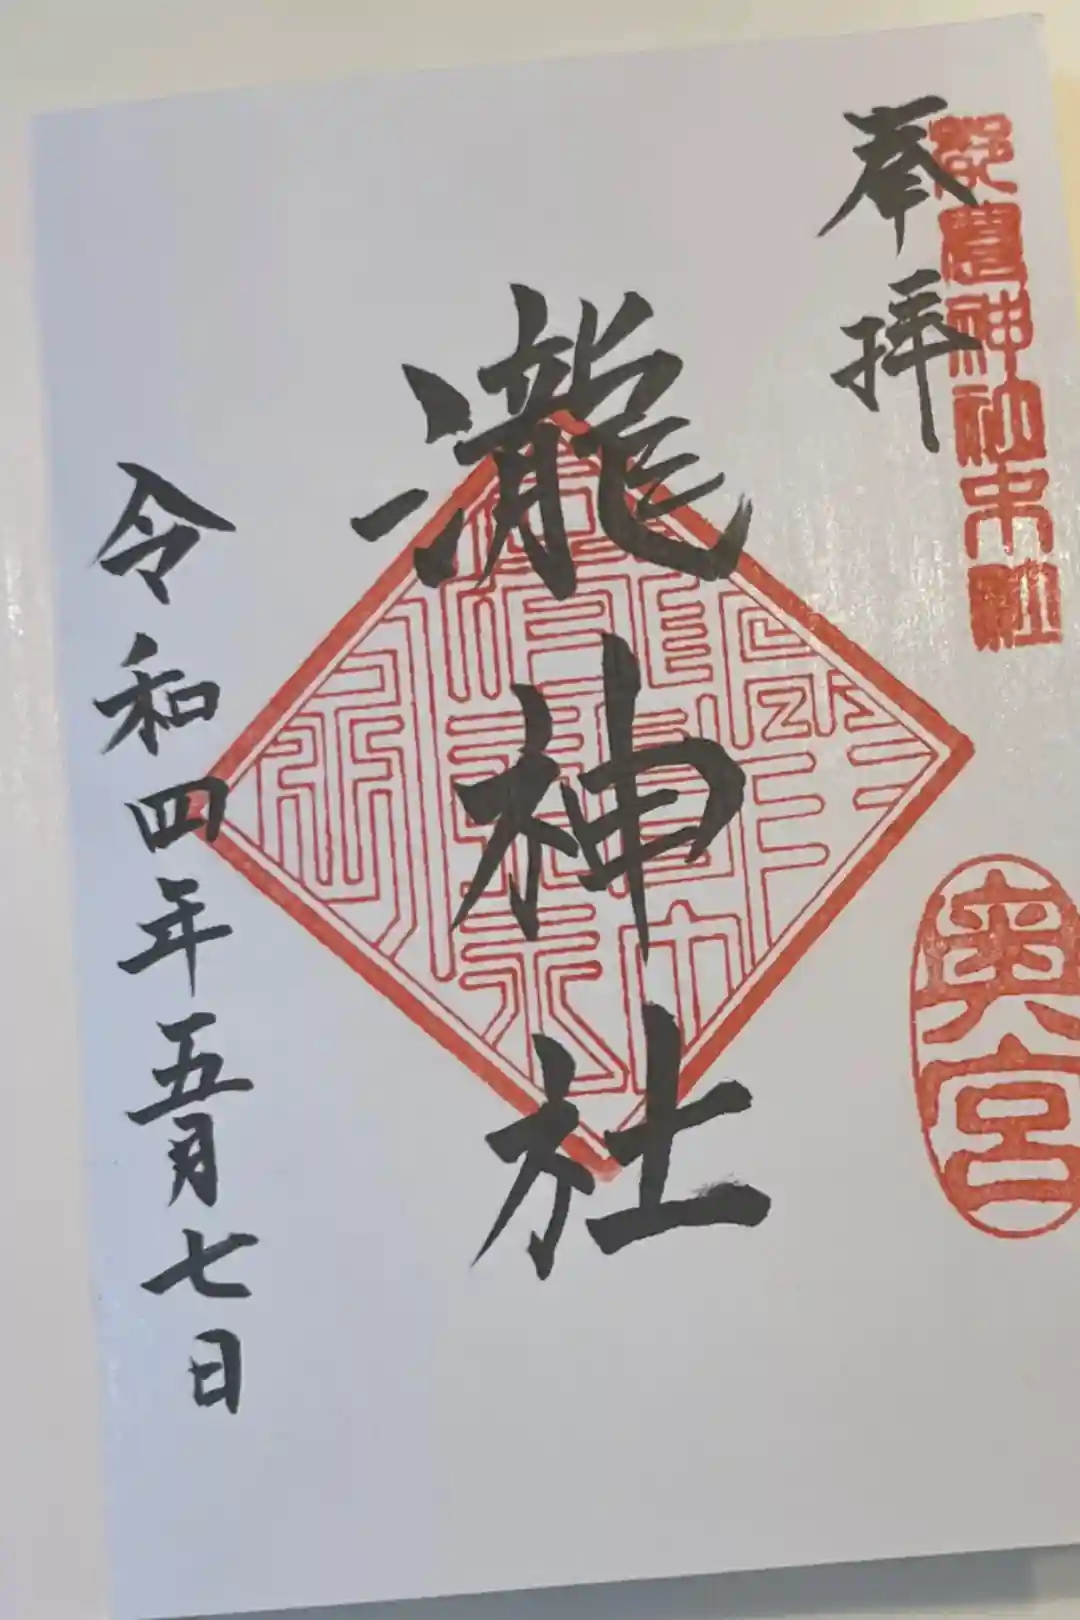 奉拝
都農神社末社
奥宮
瀧神社
令和四年五月七日